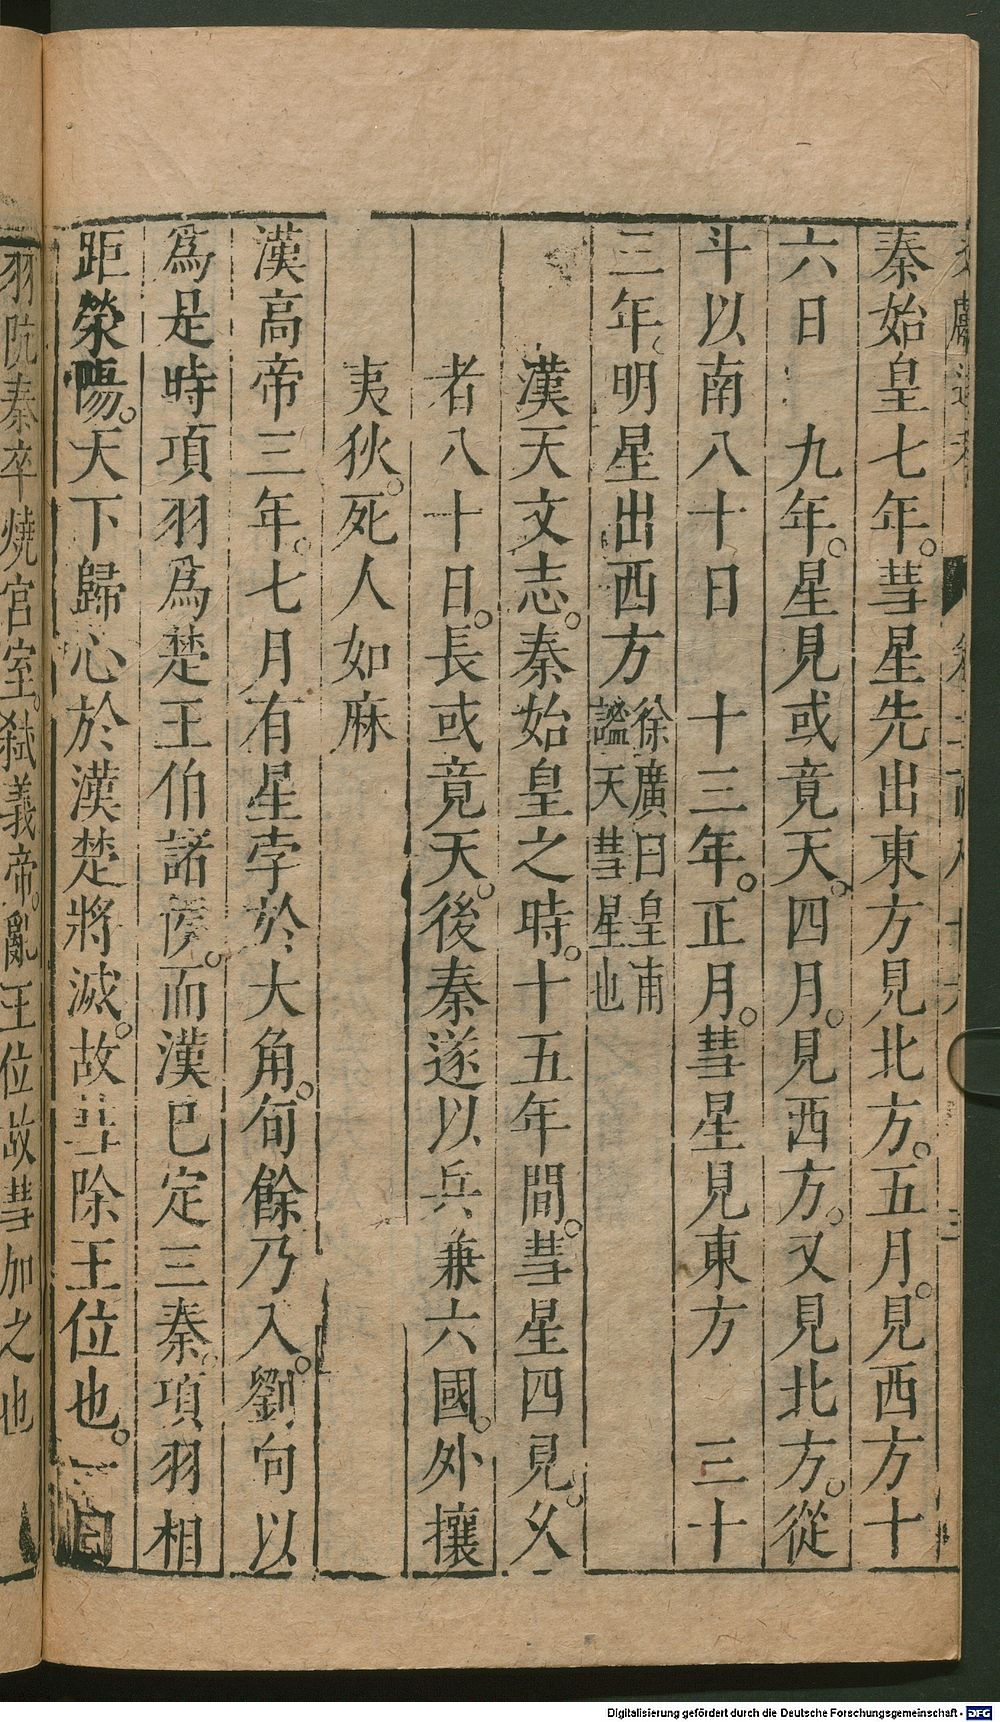 秦始皇七年。彗星先出東方見北方。五月。見西方十
六日　九年。星見或竟天。四月。見西方。又見北方。從
斗以南八十日　十三年。正月。彗星見東方　三十
三年。明星出西方徐廣曰皇甫
謐天彗星也
漢天文志。秦始皇之時。十五年間。彗星四見。久
者八十日。長或竟天。後秦遂以兵兼六國。外攘
夷狄。死人如麻
漢高帝三年。七月有星孛於大角。旬餘乃入。劉向以
爲是時項羽爲楚王伯諸侯。而漢已定三秦。項羽相
距滎陽。天下歸心於漢楚將滅。故彗除王位也。一曰
羽阬秦卒燒宮室。弑義帝。亂王位故彗加之也
Digitalisierung gefördert durch die Deutsche Forschungsgemeinschaft - DFG